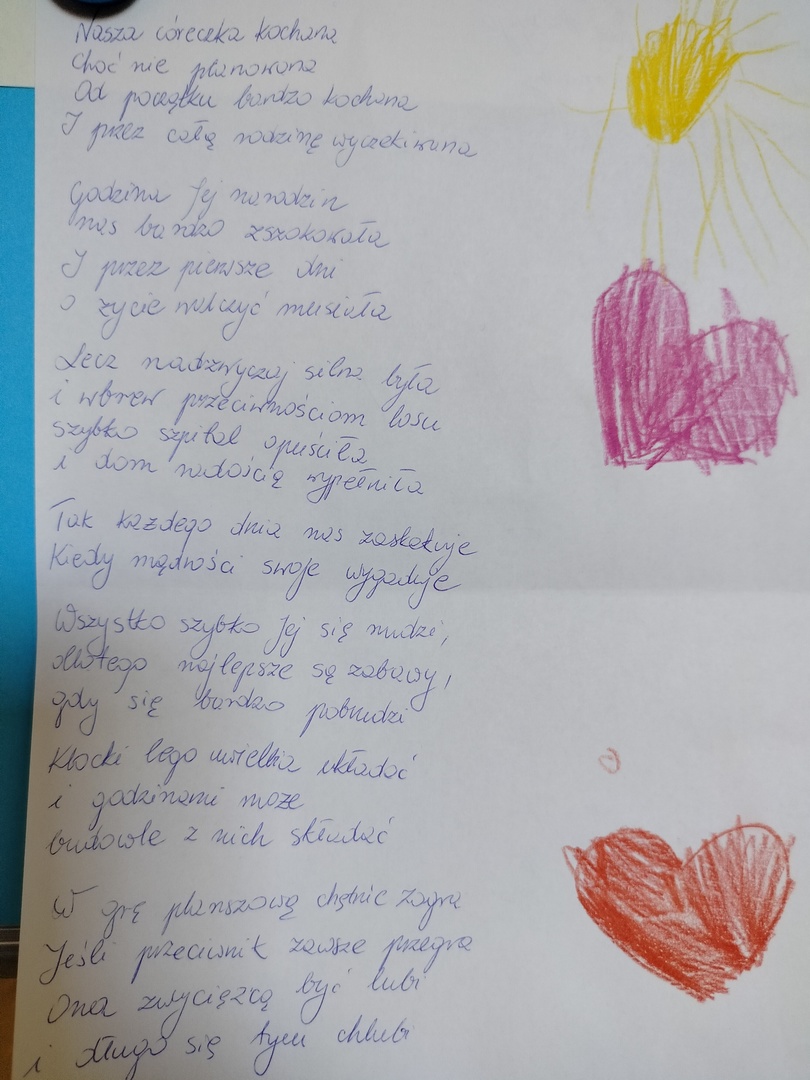 Nasza córeczka kochana
Choć nie planowana
Od początku bardzo kochana
I przez całą rodzinę wyczekiwana
Godzina Jej narodzin
nas bardzo zszokowała
I przez pierwsze dni
o życie walczyć musiała
Lecz nadzwyczaj silna była
i wbrew przeciwnościom losu
szybko szpital opuściła
i dom radością wypełniła
Tak każdego dnia nas zaskakuje
Kiedy mądrości swoje wygaduje
Wszystko szybko Jej się nudzi,
dlatego najlepsze są zabawy,
gdy się bardzo pobrudzi
Klocki lego uwielbia układać
i godzinami może
budowle z nich składać
W grę planszową chętnie zagra
Jeśli przeciwnik zawsze przegra
Ona zwyciężcą być lubi
i długo się tym chlubi